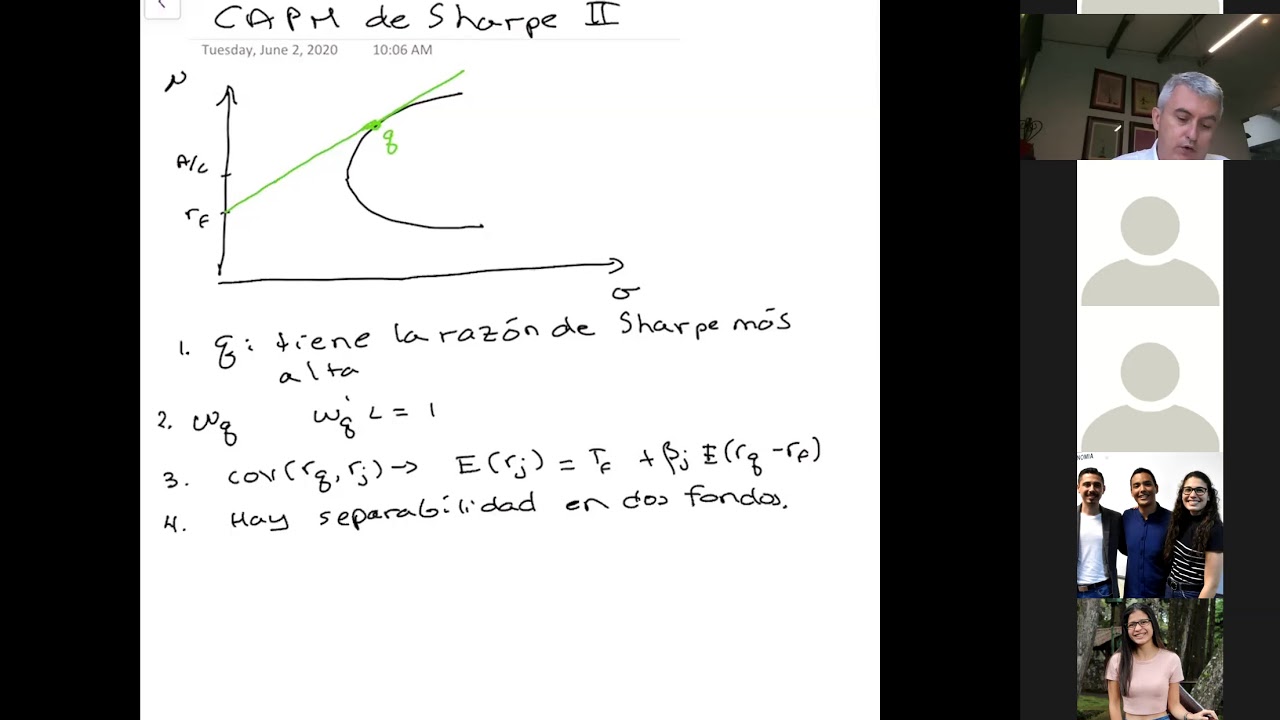 CAPM de Sharpe II
Tuesday, June 2, 2020 10:06 AM
μ
A/C
rF
q
σ
1. q: tiene la razón de Sharpe más
alta
2. wq wq' ι = 1
3. cov(rq, rj) → E(rj) = rF + βj E(rq - rF)
4. Hay separabilidad en dos fondos.
NOMIA